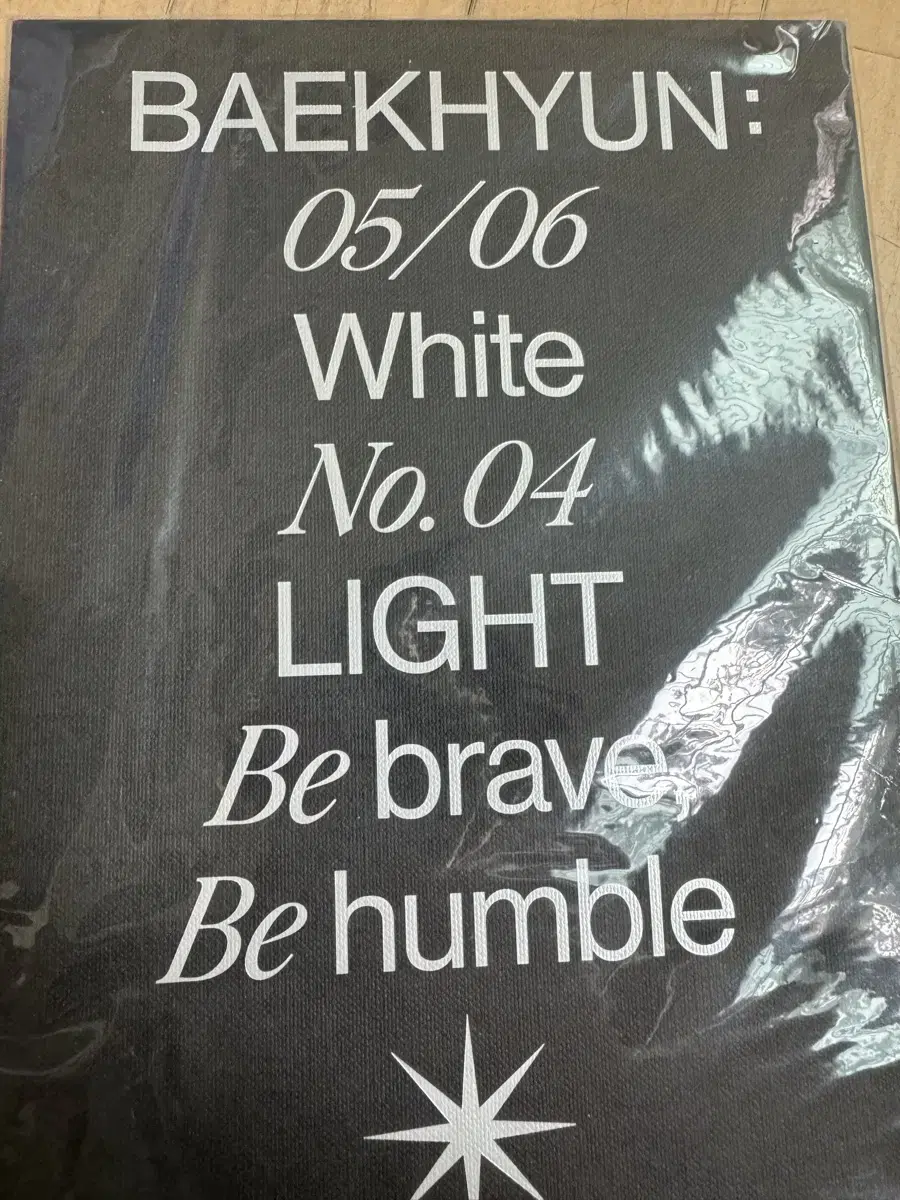 BAEKHYUN:
05/06
White
No. 04
LIGHT
Be brave,
Be humble